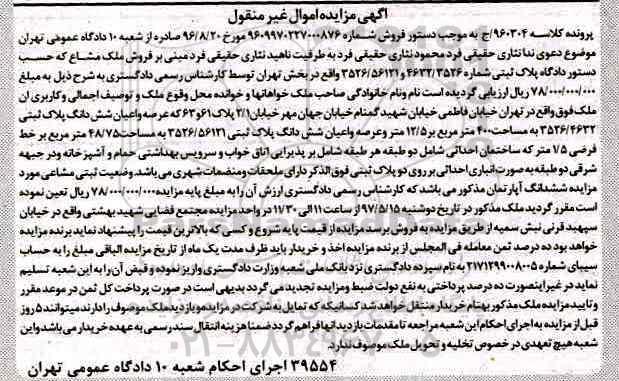 آگهی مزایده اموال غیر منقول
پرونده کلاسه ۹۶۰۳۰۴/ج به موجب دستور فروش شماره ۹۶۰۹۹۷۰۲۲۷۰۰۰۸۷۶ مورخ ۹۶/۸/۲۰ صادره از شعبه ۱۰ دادگاه عمومی تهران
موضوع دعوی ندا نثاری حقیقی فرد محمود نثاری حقیقی فرد به طرفیت ناهید نثاری حقیقی فرد مبنی بر فروش ملک مشاع که حسب
دستور دادگاه پلاک ثبتی شماره ۴۶۳۲/۳۵۲۶ و ۳۵۲۶/۵۶۱۲۱ واقع در بخش تهران توسط کارشناس رسمی دادگستری به شرح ذیل به مبلغ
۷۸/۰۰۰/۰۰۰/۰۰۰ ریال ارزیابی گردیده است نام ونام خانوادگی صاحب ملک خواهانها و خوانده محل وقوع ملک و توصیف اجمالی و کاربری ان
ملک فوق واقع در تهران خیابان فاطمی خیابان شهید گمنام خیابان جهان مهر خیابان ۲/۱ پلاک ۶۱و۶۳ که عرصه واعیان شش دانگ پلاک ثبتی
۳۵۲۶/۴۶۳۲ به مساحت ۴۰۰ متر مربع بر ۱۲/۵ متر و عرصه واعیان شش دانگ پلاک ثبتی ۳۵۲۶/۵۶۱۲۱ به مساحت ۴۸/۷۵ متر مربع بر خط
فرضی ۱/۵ متر که ساختمان احداثی شامل دو طبقه هر طبقه شامل بر پذیرایی اتاق خواب و سرویس بهداشتی حمام و آشپزخانه ودر جبهه
شرقی دو طبقه به صورت انباری احداثی بر روی دو پلاک ثبتی فوق الذکر دارای ملحقات ومنضمات شهری می باشد. وضعیت ثبتی مشاعی مورد
مزایده ششدانگ آپارتمان مذکور می باشد که کارشناس رسمی دادگستری ارزش آن را به مبلغ پایه مزایده ۷۸/۰۰۰/۰۰۰/۰۰۰ ریال تعیین نموده
است مقرر گردید ملک مذکور در تاریخ دوشنبه ۹۷/۵/۱۵ از ساعت ۱۱ الی ۱۱/۳۰ در واحد مزایده مجتمع قضایی شهید بهشتی واقع در خیابان
سپهبد قرنی نبش سمیه از طریق مزایده به فروش برسد مزایده از قیمت پایه شروع و کسی که بالاترین قیمت را پیشنهاد نماید برنده مزایده
خواهد بود ده درصد ثمن معامله فی المجلس از برنده مزایده اخذ و خریدار باید ظرف مدت یک ماه از تاریخ مزایده الباقی مبلغ را به حساب
سیبای شماره ۲۱۷۱۲۹۹۰۰۸۰۰۵ به نام سپرده دادگستری نزد بانک ملی شعبه وزارت دادگستری واریز نموده و قبض آن را به این شعبه تسلیم
نماید در غیر اینصورت ده درصد پرداختی به نفع دولت ضبط ومزایده تجدید می گردد بدیهی است در صورت پرداخت کل ثمن در موعد مقرر
و تایید مزایده ملک مذکور بهنام خریدار منتقل خواهد شد کسانیکه که تمایل به شرکت در مزایده و بازدید ملک موصوف را دارند میتوانند ۵ روز
قبل از مزایده به اجرای احکام این شعبه مراجعه تا مقدمات بازدید انها فراهم گردد ضمنا هزینه انتقال سند رسمی به عهده خریدار می باشد واین
شعبه هیچ تعهدی در خصوص تخلیه و تحویل ملک موصوف ندارد.
۳۹۵۵۴ اجرای احکام شعبه ۱۰ دادگاه عمومی تهران